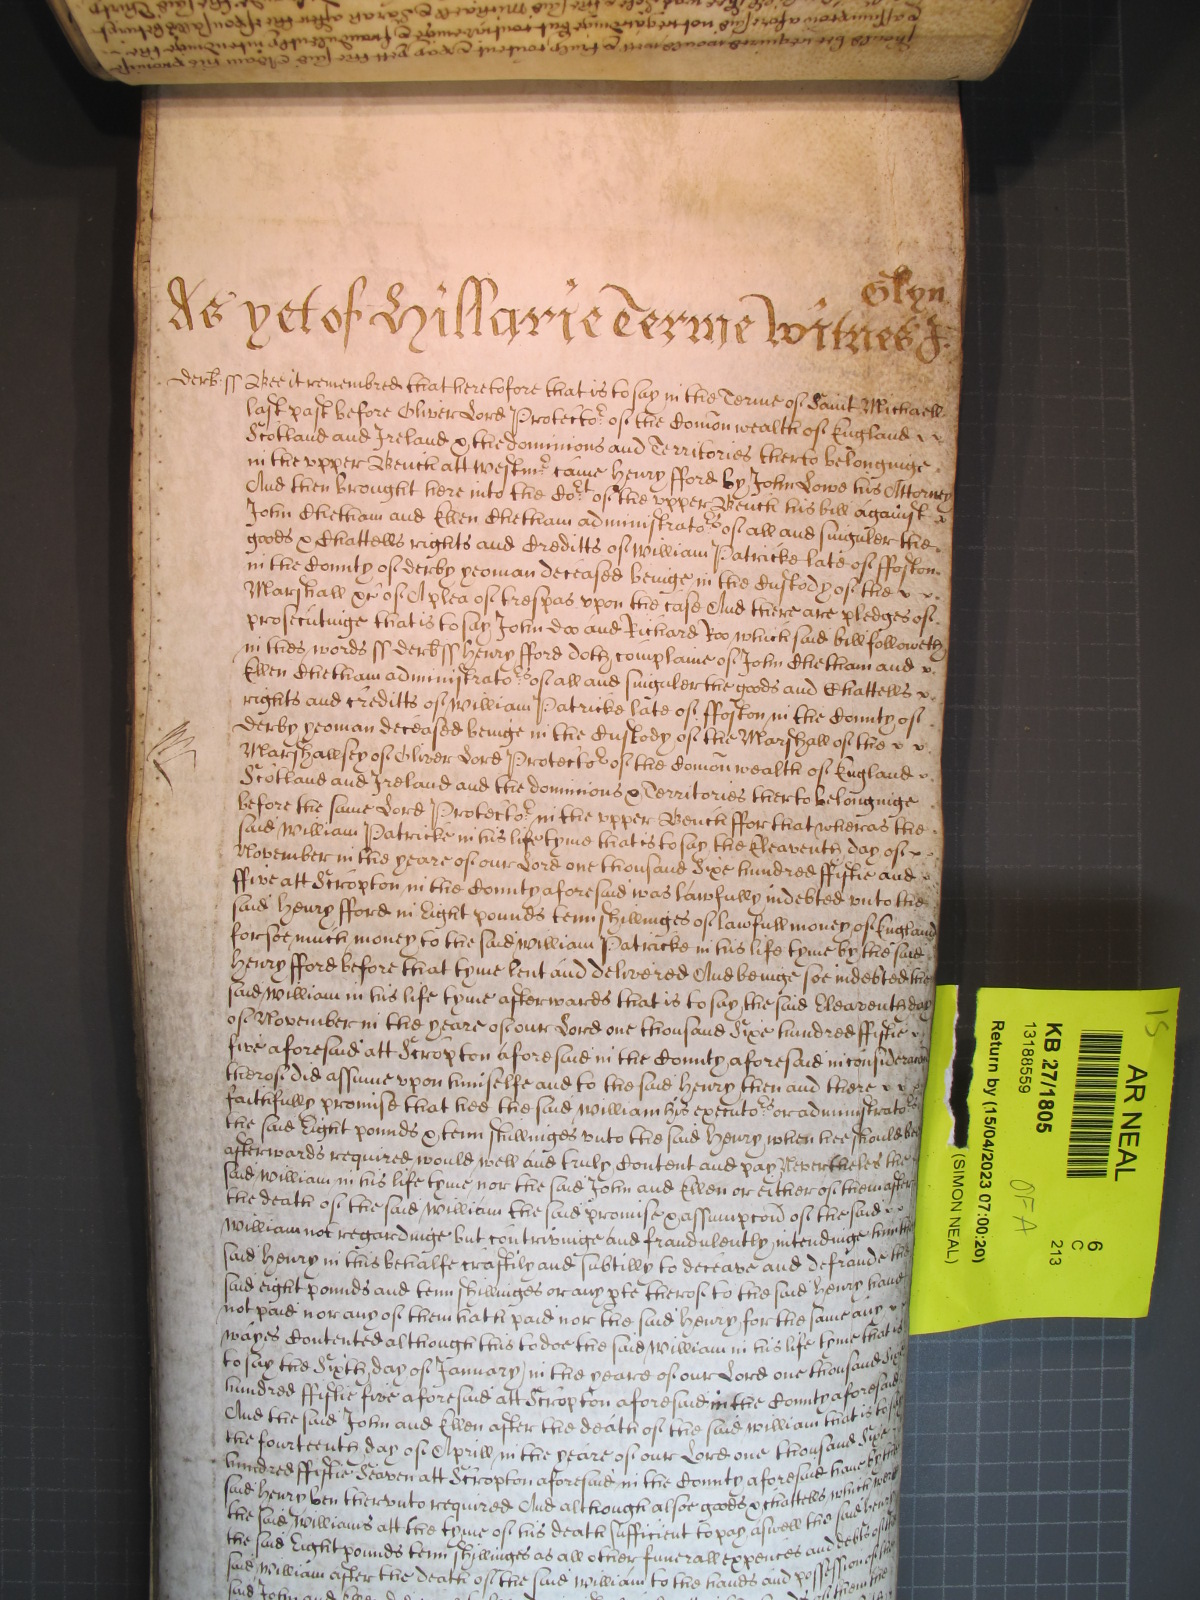 Glyn
As yet of Hillarie Terme Witnes J.
Derb: ss Bee it remembred that heretofore that is to say in the Terme of Saint Michaell
last past before Oliver Lord Protector of the Comon wealth of England
Scotland and Ireland & the dominions and Territories therto belonginge
in the vpper Bench att Westmr came Henry fford by John Lowe his Attorney
And then brought here into the Cort of the vpper Bench his bill against
John Chetham and Ellen Chetham administrators of all and singuler the
goods & Chattells rights and Creditts of William Patricke late of ffoston
in the County of derby yeoman deceased beinge in the Custody of the
Marshall &c of A plea of trespas vpon the case And there are pledges of
prosecutinge that is to say John Doo and Richard Roo which said bill followeth
in thes words ss derb ss Henry fford doth complaine of John Chetham and
Ellen Chetham administrators of all and singuler the goods and Chattells
rights and Creditts of William Patricke late of ffoston in the County of
Derby yeoman deceased beinge in the Custody of the Marshall of the
Marshallsey of Oliver Lord Protector of the Comon wealth of England
Scotland and Ireland and the dominions & Territories therto belonginge
before the same Lord Protector in the vpper Bench ffor that wheras the
said William Patricke in his life tyme that is to say the Eleaventh day of
November in the yeare of our Lord one thousand Sixe hundred ffiftie and
ffive att Scropton in the County aforesaid was lawfully indebted vnto the
said Henry fford in Eight pounds tenn shillinges of lawfull money of England
for soe much money to the said William Patricke in his life tyme by the said
Henry fford before that tyme lent and delivered And beinge soe indebted the
said William in his life tyme afterwards that is to say the said Eleaventh day
of November in the yeare of our Lord one thousand Sixe hundred ffiftie
five aforesaid att Scropton aforesaid in the County aforesaid in consideracon
therof did assume vpon himselfe and to the said Henry then and there
faithfully promise that hee the said William his executors or administrators
the said Eight pounds & tenn shillinges vnto the said Henry when hee should bee
afterwards required would well and truly Content and pay Nevertheles the
said William in his life tyme nor the said John and Ellen or either of them after
the death of the said William the said promise & assumpcon of the said
William not regardinge but contrivinge and fraudulently intendinge him the
said Henry in this behalfe craftily and subtilly to deceave and defraude the
said eight pounds and tenn shillinges or any pte therof to the said Henry have
not paid nor any of them hath paid nor the said Henry for the same any
wayes Contented although this to doe the said William in his life tyme that is
to say the Sixth day of January in the yeare of our Lord one thousand Sixe
hundred ffiftie five aforesaid att Scropton aforesaid in the County aforesaid
And the said John and Ellen after the death of the said William that is to say
the fourteenth day of Aprill in the yeare of our Lord one thousand Sixe
hundred ffiftie Seaven att Scropton aforesaid in the County aforesaid have by the
said Henry ben thervnto required And although alsoe goods & chattells which were
the said Williams att the tyme of his death sufficient to pay aswell the said Henry
the said Eight pounds tenn shillinges as all other funerall expences and debts of the
said William after the death of the said William to the hands and possession of the
said John and Ellen
AR NEAL
KB 27/1805
13188559
Return by (15/04/2023 07:00:20)
(SIMON NEAL)
6
C
213
OFA
15